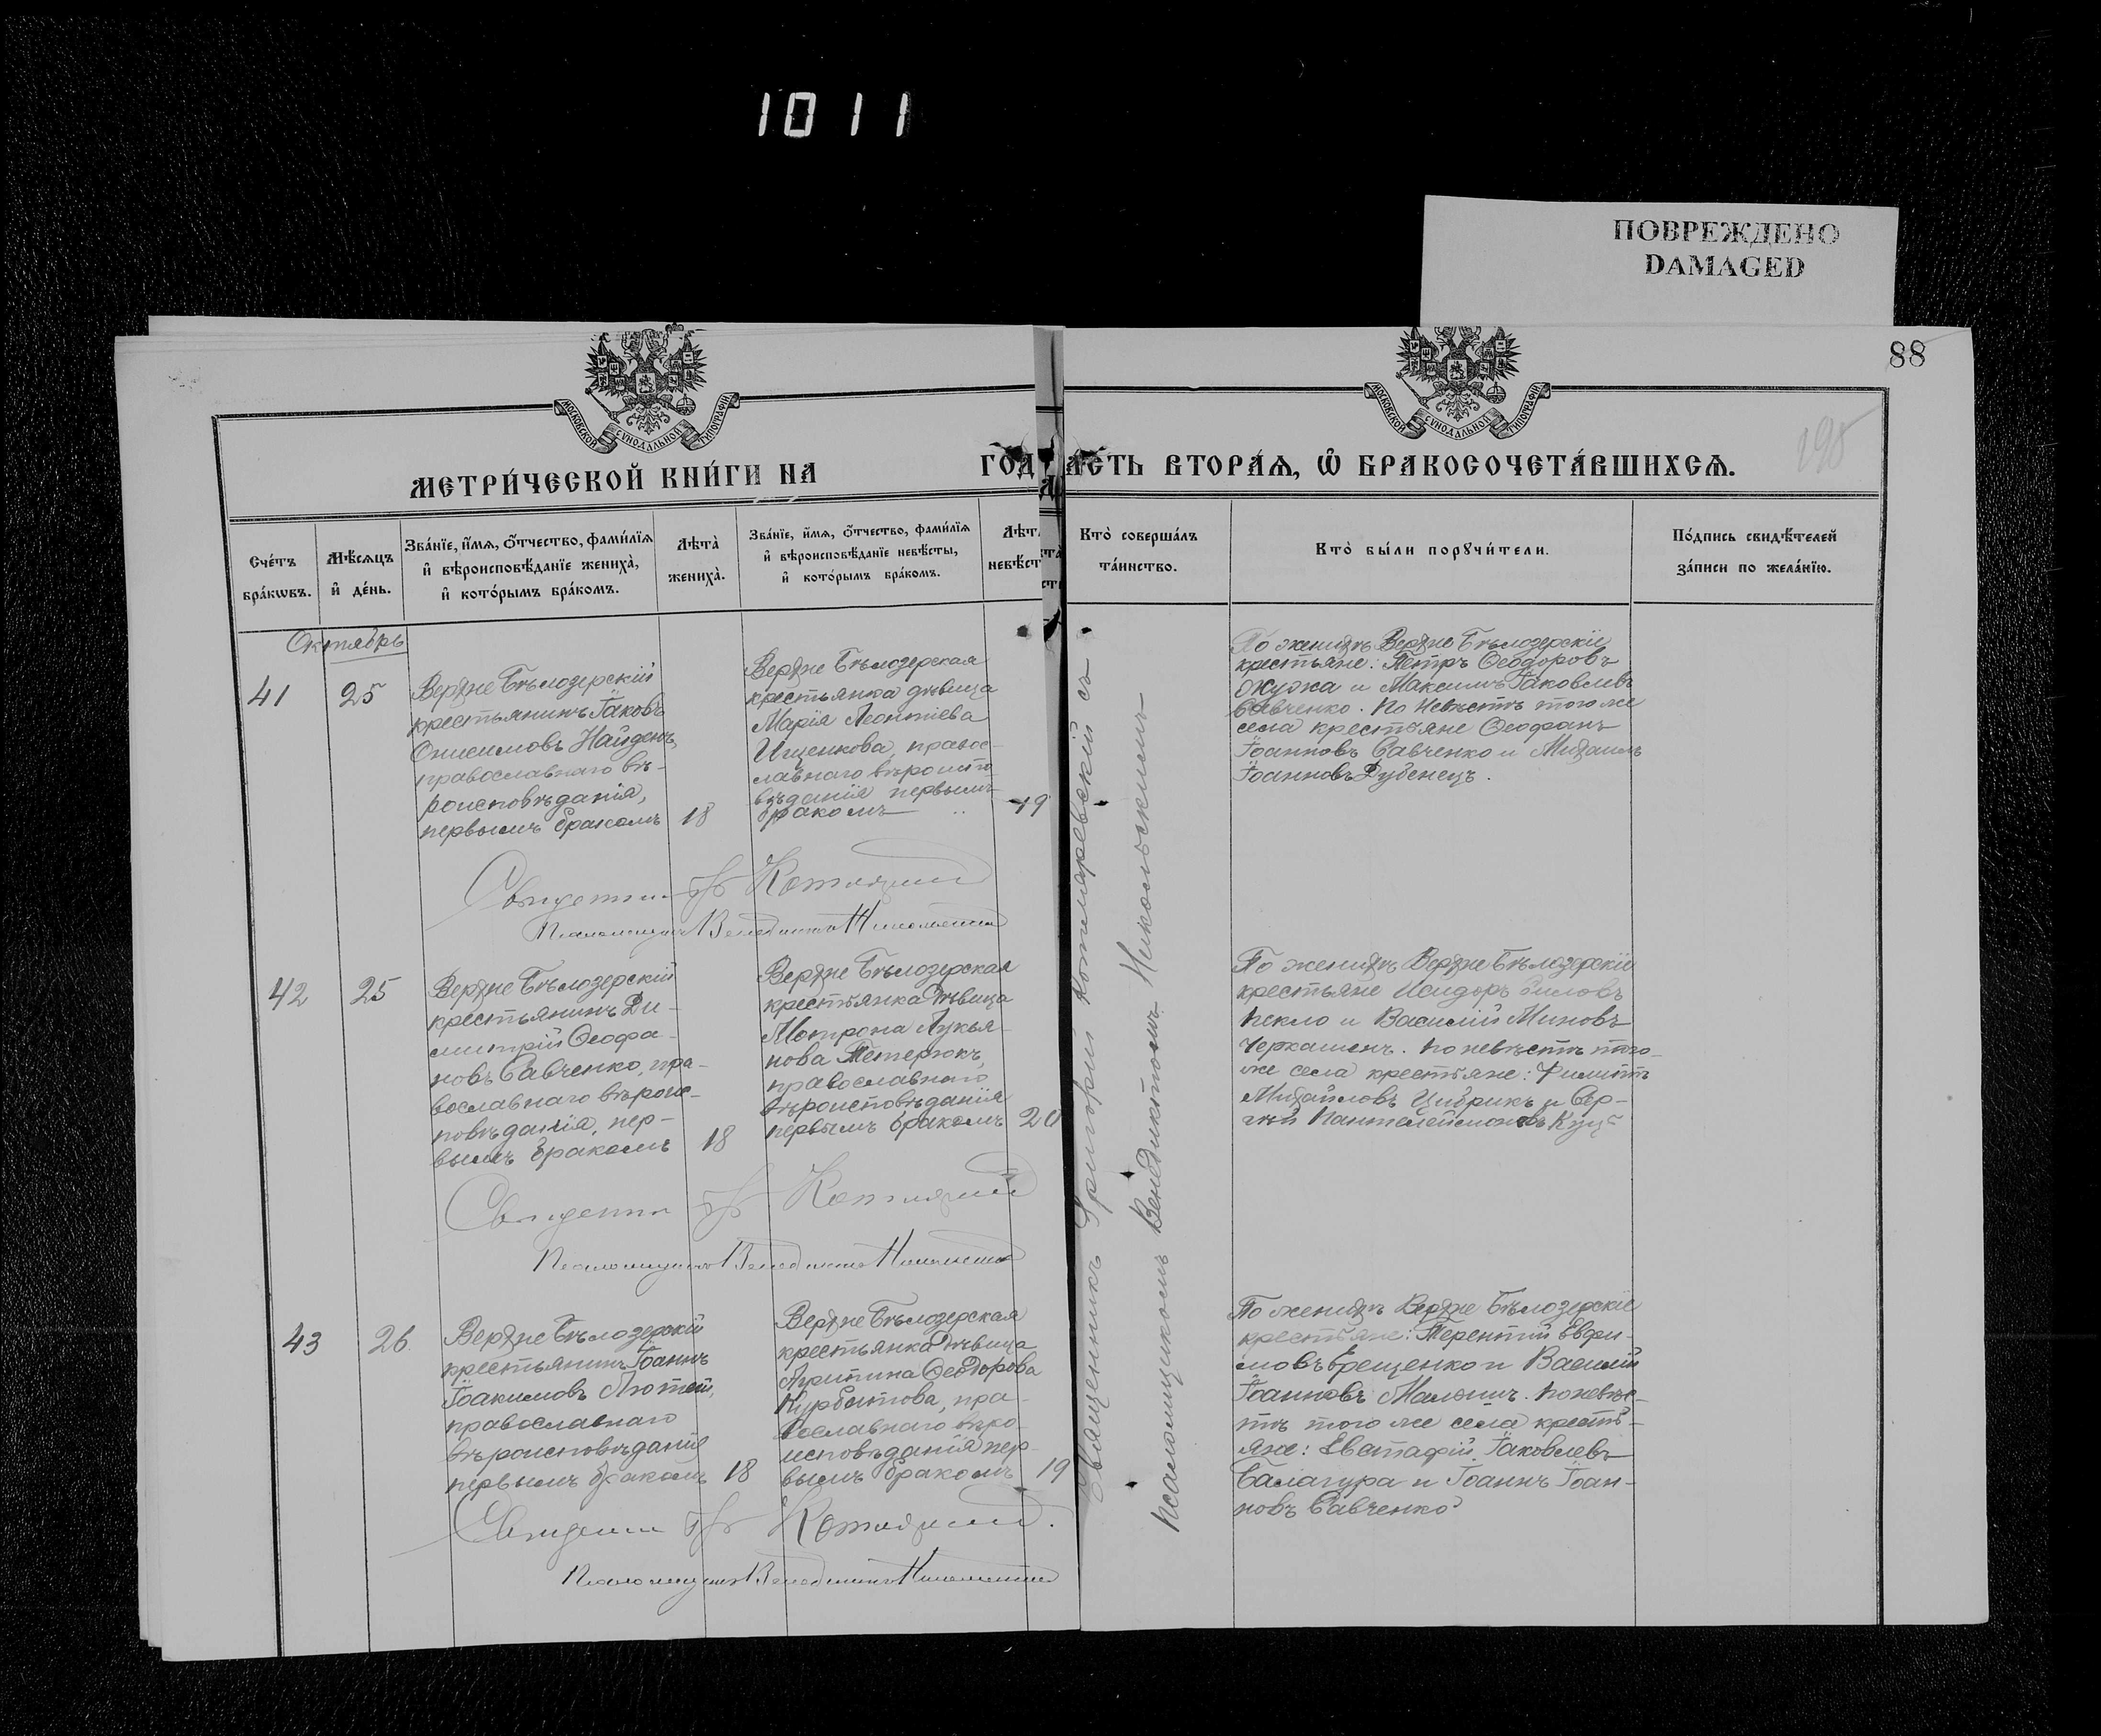 1011
ПОВРЕЖДЕНО
DAMAGED
88
198
МОСКОВСКОЙ СУНОДАЛЬНОЙ ТИПОГРАФІИ
МОСКОВСКОЙ СУНОДАЛЬНОЙ ТИПОГРАФІИ
МЕТРИ́ЧЕСКОЙ КНИ́ГИ НА ГОДЪ
ЧАСТЬ ВТОРА́Я, Ѡ БРАКОСОЧЕТА́ВШИХСѦ.
Сче́тъ
бра́кѡвъ.
Мѣ́сяцъ
и҆ де́нь.
Зва́нїе, и҆́мѧ, ѻ҆́тчество, фами́лїѧ
и҆ вѣроисповѣ́данїе жениха̀,
и҆ кото́рымъ бра́комъ.
Лѣта̀
жениха̀.
Зва́нїе, и҆́мѧ, ѻ҆́тчество, фами́лїѧ
и҆ вѣроисповѣ́данїе невѣ́сты,
и҆ кото́рымъ бра́комъ.
Лѣта
невѣ́ст
Кто̀ соверша́лъ
та́инство.
Кто̀ бы́ли порꙋчи́тели.
По́дпись свидѣ́телей
за́писи по жела́нїю.
Октябрь
41
25
Верхне Бѣлозерскій
крестьянинъ Іаковъ
Онисимовъ Найденъ,
православнаго вѣ-
роисповѣданія,
первымъ бракомъ
18
Верхне Бѣлозерская
крестьянка дѣвица
Марія Леонтіева
Ищенкова, правос-
лавнаго вѣроиспо
вѣданія первымъ
бракомъ
19
По женихѣ Верхне Бѣлозерскіе
крестьяне: Петръ Ѳеодоровъ
Окунжа и Максимъ Іаковлевъ
Савченко. По невѣстѣ того же
села крестьяне Ѳеофанъ
Іоанновъ Савченко и Михаилъ
Іоанновъ Дубенецъ.
Псаломщикъ Венедиктъ Никольскій
42
25
Верхне Бѣлозерскій
крестьянинъ Ди-
митрій Ѳеофа-
новъ Савченко, пра-
вославнаго вѣроис-
повѣданія, пер-
вымъ бракомъ
18
Верхне Бѣлозерская
крестьянка дѣвица
Мотрона Лукья-
нова Тетерюкъ,
православнаго
вѣроисповѣданія
первымъ бракомъ
20
По женихѣ Верхне Бѣлозерскіе
крестьяне Исидоръ Силовъ
Пекло и Василій Миновъ
Черкашенъ. По невѣстѣ того-
же села крестьяне: Филиппъ
Михайловъ Цибрикъ и Сер-
гѣй Пантелеймоновъ Куцъ
Псаломщикъ Венедиктъ Никольскій
43
26.
Верхне Бѣлозерскій
крестьянинъ Іоаннъ
Іоакимовъ Лютый,
православнаго
вѣроисповѣданія
первымъ бракомъ
18
Верхне Бѣлозерская
крестьянка дѣвица
Агрипина Ѳеодорова
Курбатова, пра-
вославнаго вѣро-
исповѣданія пер-
вымъ бракомъ
19
По женихѣ Верхне Бѣлозерскіе
крестьяне: Терентій Евфи-
мовъ Ерещенко и Василій
Іоанновъ Малышъ. По невѣс-
тѣ того же села кресть-
яне: Евстафій Іаковлевъ
Балагура и Іоаннъ Іоан-
новъ Савченко
Псаломщикъ Венедиктъ Никольскій
Священникъ Григорій Котляревскій съ
псаломщикомъ Венедиктомъ Никольскимъ